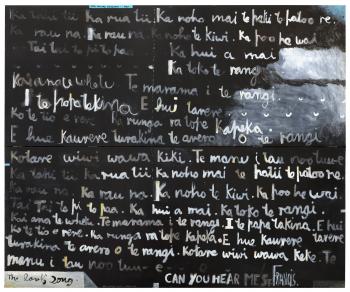 Ka tahi tii. Ka rua tii. Ka noho mai te pati te patoo re.
Ka rau na. Ka rau na. Ka noho te kiwi. Ka poo he wai
Tai tai te pi to pa Ka hui a mai
Ka toko te rangi
Kai ana te whetu Te marama i te rangi.
I te papa takina E hui tarere
Ko te tio e rere. Ka runga ra tope kapeka
E hue kaurere turakina te arero o te rangi.
Kotare wiwi wawa kiki. Te manu i tau
Ka tahi tii. Ka rua tii Ka noho mai te patii te patoo re.
Ka rau na. Ka rau na. Ka noho te kiwi. Ka poo he wai.
Tai Tai te pi to paa. Ka hui a mai. Ka toko te rangi.
Kai ana te whetu. Te marama i te rangi. I te papa takina. E hui
Ko te tio e rere. Ka runga ra tope kapeka. E hue kaurere tarere
turakina te arero o te rangi. Kotare wiwi wawa keke. Te
manu i tau
The Song. CAN YOU HEAR ME ST. FRANCIS.